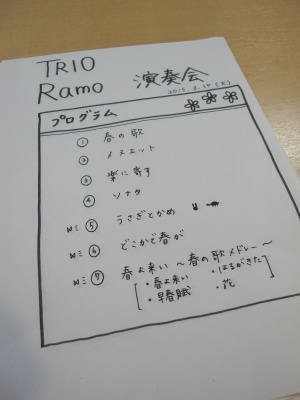 TRIO
Ramo 演奏会
2015.2.17(火)
プログラム
① 春の歌
② メヌエット
③ 楽に寄す
④ ソナタ
⑤ うさぎとかめ
⑥ どこかで春が
⑦ 春よ来い 〜春の歌メドレー〜
・春よ来い ・はるがきた
・早春賦 ・花